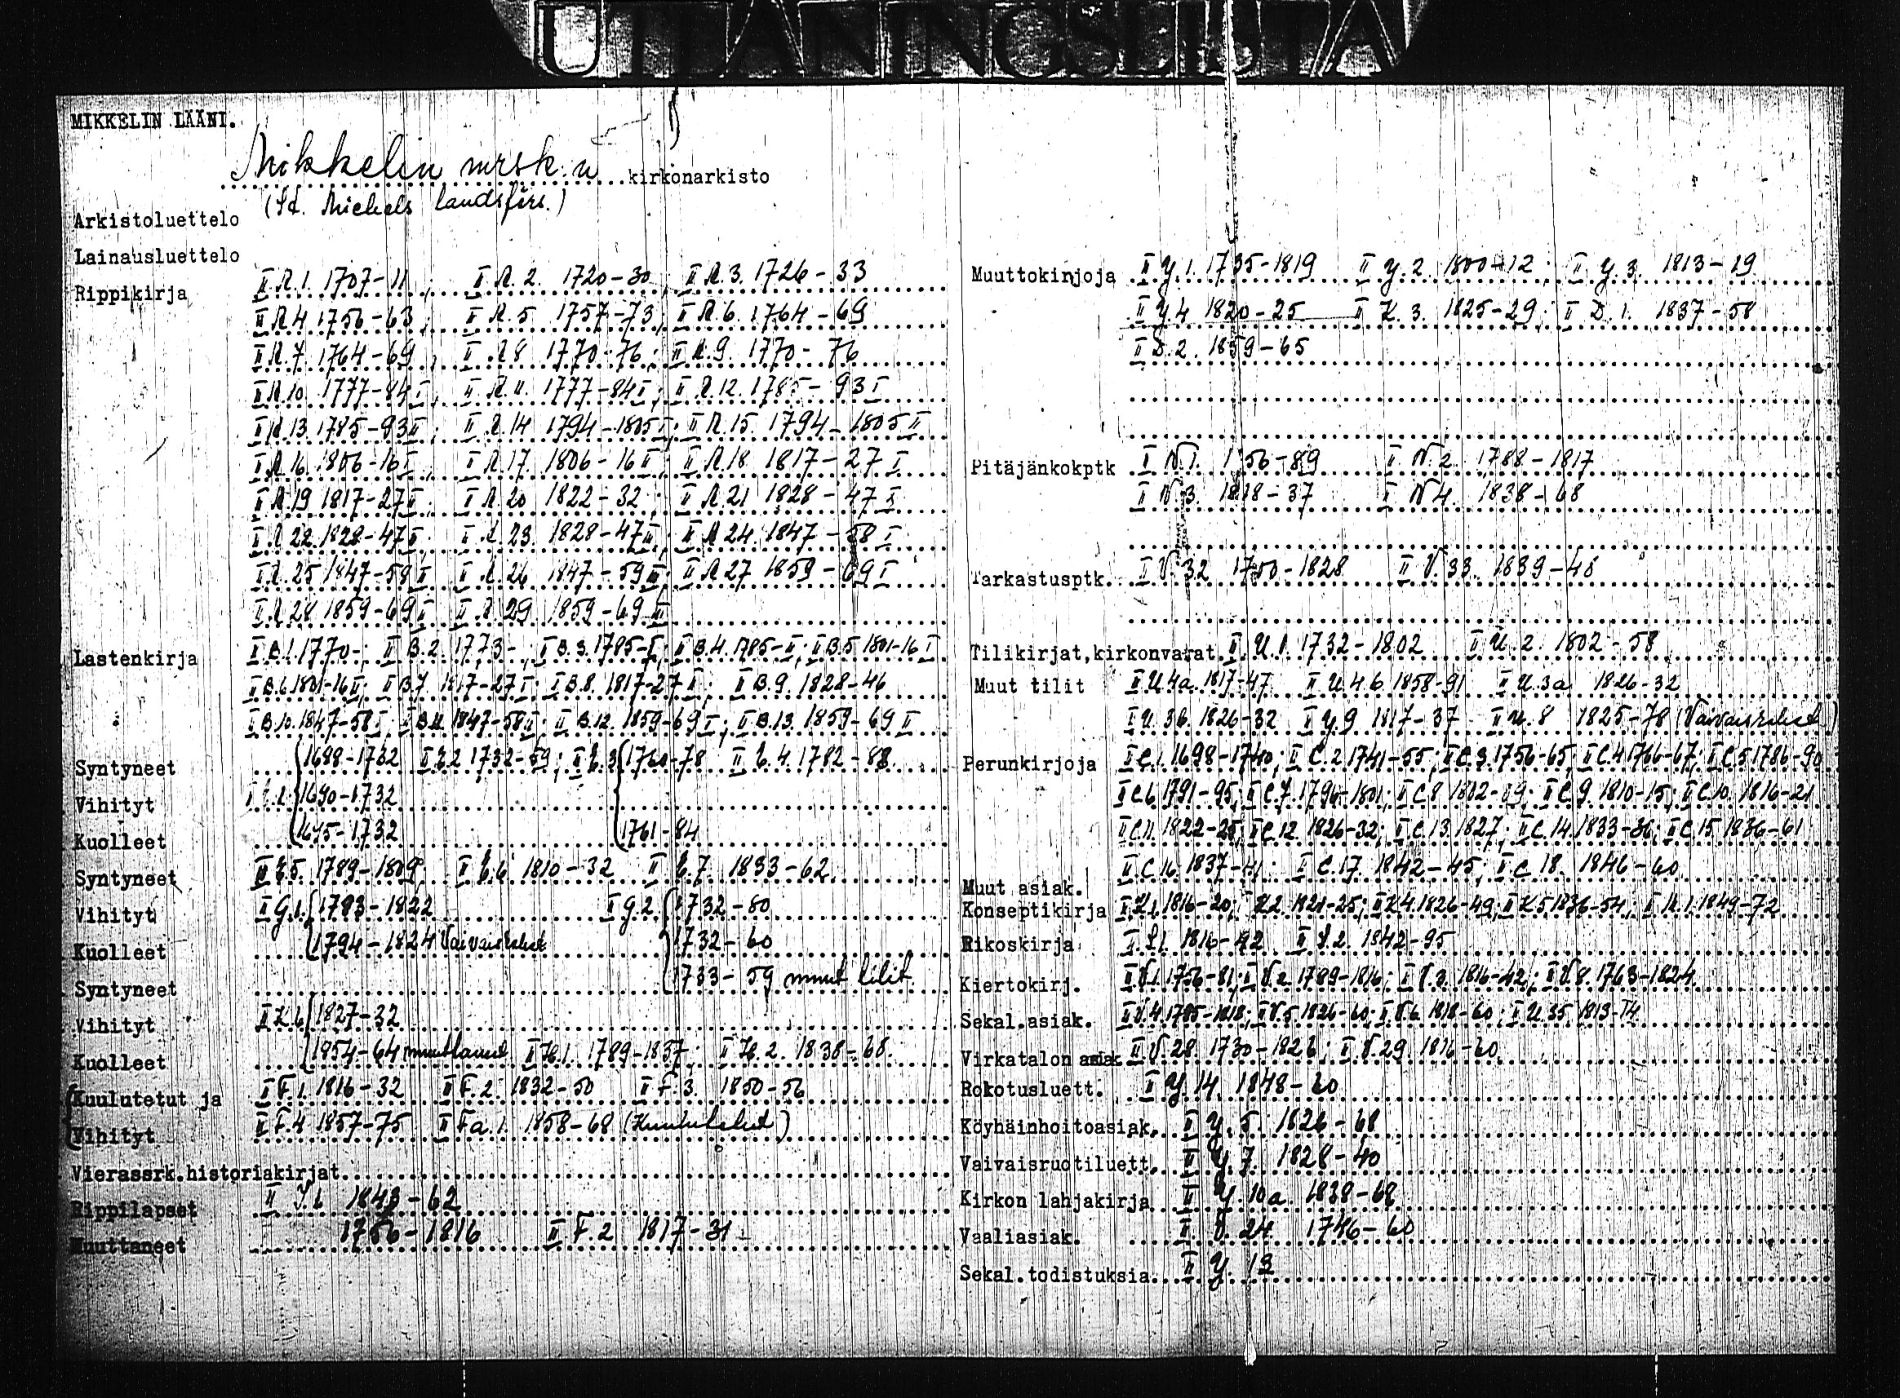 UTLÅNINGSLISTA
MIKKELIN LÄÄNI.
Mikkelin mrsk:n kirkonarkisto
(St. Michels landsförs.)
Arkistoluettelo
Lainausluettelo
Rippikirja II A.1. 1707-11, II A.2. 1720-30, II A.3. 1726-33
II A.4 1756-63, II A.5 1757-73, II A.6. 1764-69
II A.7 1764-69, II A.8 1770-76, II A.9. 1770-76
II A.10. 1777-84 I, II A.11. 1777-84 I, II A.12. 1785-93 I
II A.13. 1785-93 II, II A.14 1794-1805 I, II A.15. 1794-1805 II
II A.16. 1806-16 I, II A.17. 1806-16 II, II A.18. 1817-27 I
II A.19 1817-27 II, II A.20 1822-32, II A.21 1828-47 I
II A.22. 1828-47 II, II A.23. 1828-47 III, II A.24. 1847-58 I
II A.25 1847-59 II, II A.26 1847-59 III, II A.27 1859-69 I
II A.28 1859-69 II, II A.29 1859-69 III
Lastenkirja II B.1. 1770-; II B.2. 1773-, II B.3. 1785-I; II B.4. 1785-II; II B.5 1801-16 I
II B.6. 1801-16 II; II B.7 1817-27 I; II B.8. 1817-27 II; II B.9. 1828-46
II B.10. 1847-58 I, II B.11. 1847-58 II; II B.12. 1859-69 I; II B.13. 1859-69 II
Syntyneet 1698-1732 1732-59; 1760-78 1782-88
Vihityt 1690-1732
Kuolleet 1695-1732 1761-84
Syntyneet 1789-1809 1810-32 1833-62
Vihityt II G.1. 1793-1822 II G.2. 1732-80
Kuolleet 1794-1824 1732-60
Syntyneet 1733-59 muut tilit
Vihityt 1827-32
Kuolleet II H.1. 1789-1837; II H.2. 1838-68
Kuulutetut ja II F.1. 1816-32 II F.2 1832-50 II F.3. 1850-56
Vihityt II F.4 1857-75 II Fa.1. 1858-68
Vierassrk.historiakirjat
Rippilapset 1843-62
Muuttaneet 1756-1816 II F.2 1817-31
Muuttokirjoja II Y.1. 1735-1819 II Y.2. 1800-12; II Y.3. 1813-19
II Y.4 1820-25 II K.3. 1825-29; II D.1. 1837-58
II D.2. 1859-65
Pitäjänkokptk II N.1. 1756-89 II N.2. 1788-1817
II N.3. 1818-37 II N.4. 1838-68
Tarkastusptk. II V.32 1750-1828 II V.33. 1839-48
Tilikirjat,kirkonvarat II U.1. 1732-1802 II U.2. 1802-58
Muut tilit II U.4a. 1817-47 II U.4b. 1858-91 II U.3a 1826-32
II U.3b. 1826-32 II Y.9 1817-37 II U.8 1825-78
Perunkirjoja II C.1. 1698-1740; II C.2. 1741-55; II C.3. 1756-65, II C.4 1766-67, II C.5 1786-90
II C.6 1791-95, II C.7. 1796-1801; II C.8 1802-09; II C.9. 1810-15; II C.10. 1816-21
II C.11. 1822-25, II C.12. 1826-32; II C.13. 1827; II C.14. 1833-36; II C.15. 1836-61
II C.16. 1837-41 II C.17. 1842-45; II C.18. 1846-60
Muut asiak.
Konseptikirja II K.1. 1816-20; K.2. 1821-25; II K.4. 1826-49; II K.5 1836-54, 1849-72
Rikoskirja 1816-42 1842-95
Kiertokirj. II V.1. 1756-81; II V.2. 1789-1816; II V.3. 1816-42; II V.8. 1763-1824
Sekal.asiak. II V.4. 1785-1818; II V.5. 1826-60; II V.6. 1818-60; II U.35
Virkatalon asiak II V.28. 1730-1826; II V.29. 1816-60
Rokotusluett. II Y.14. 1848-60
Köyhäinhoitoasiak. II Y.5. 1826-68
Vaivaisruotiluett. II Y.7. 1828-40
Kirkon lahjakirja II Y.10a. 1838-68
Vaaliasiak. II V.24 1746-60
Sekal.todistuksia II Y.13